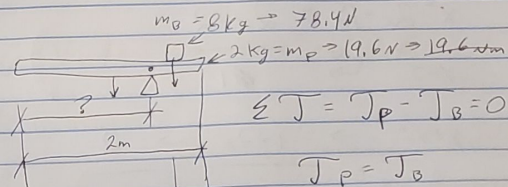 m_B = 8kg → 78.4N
2kg = m_p → 19.6N → 19.6 Nm
?
Σ T = T_p - T_B = 0
2m
T_p = T_B